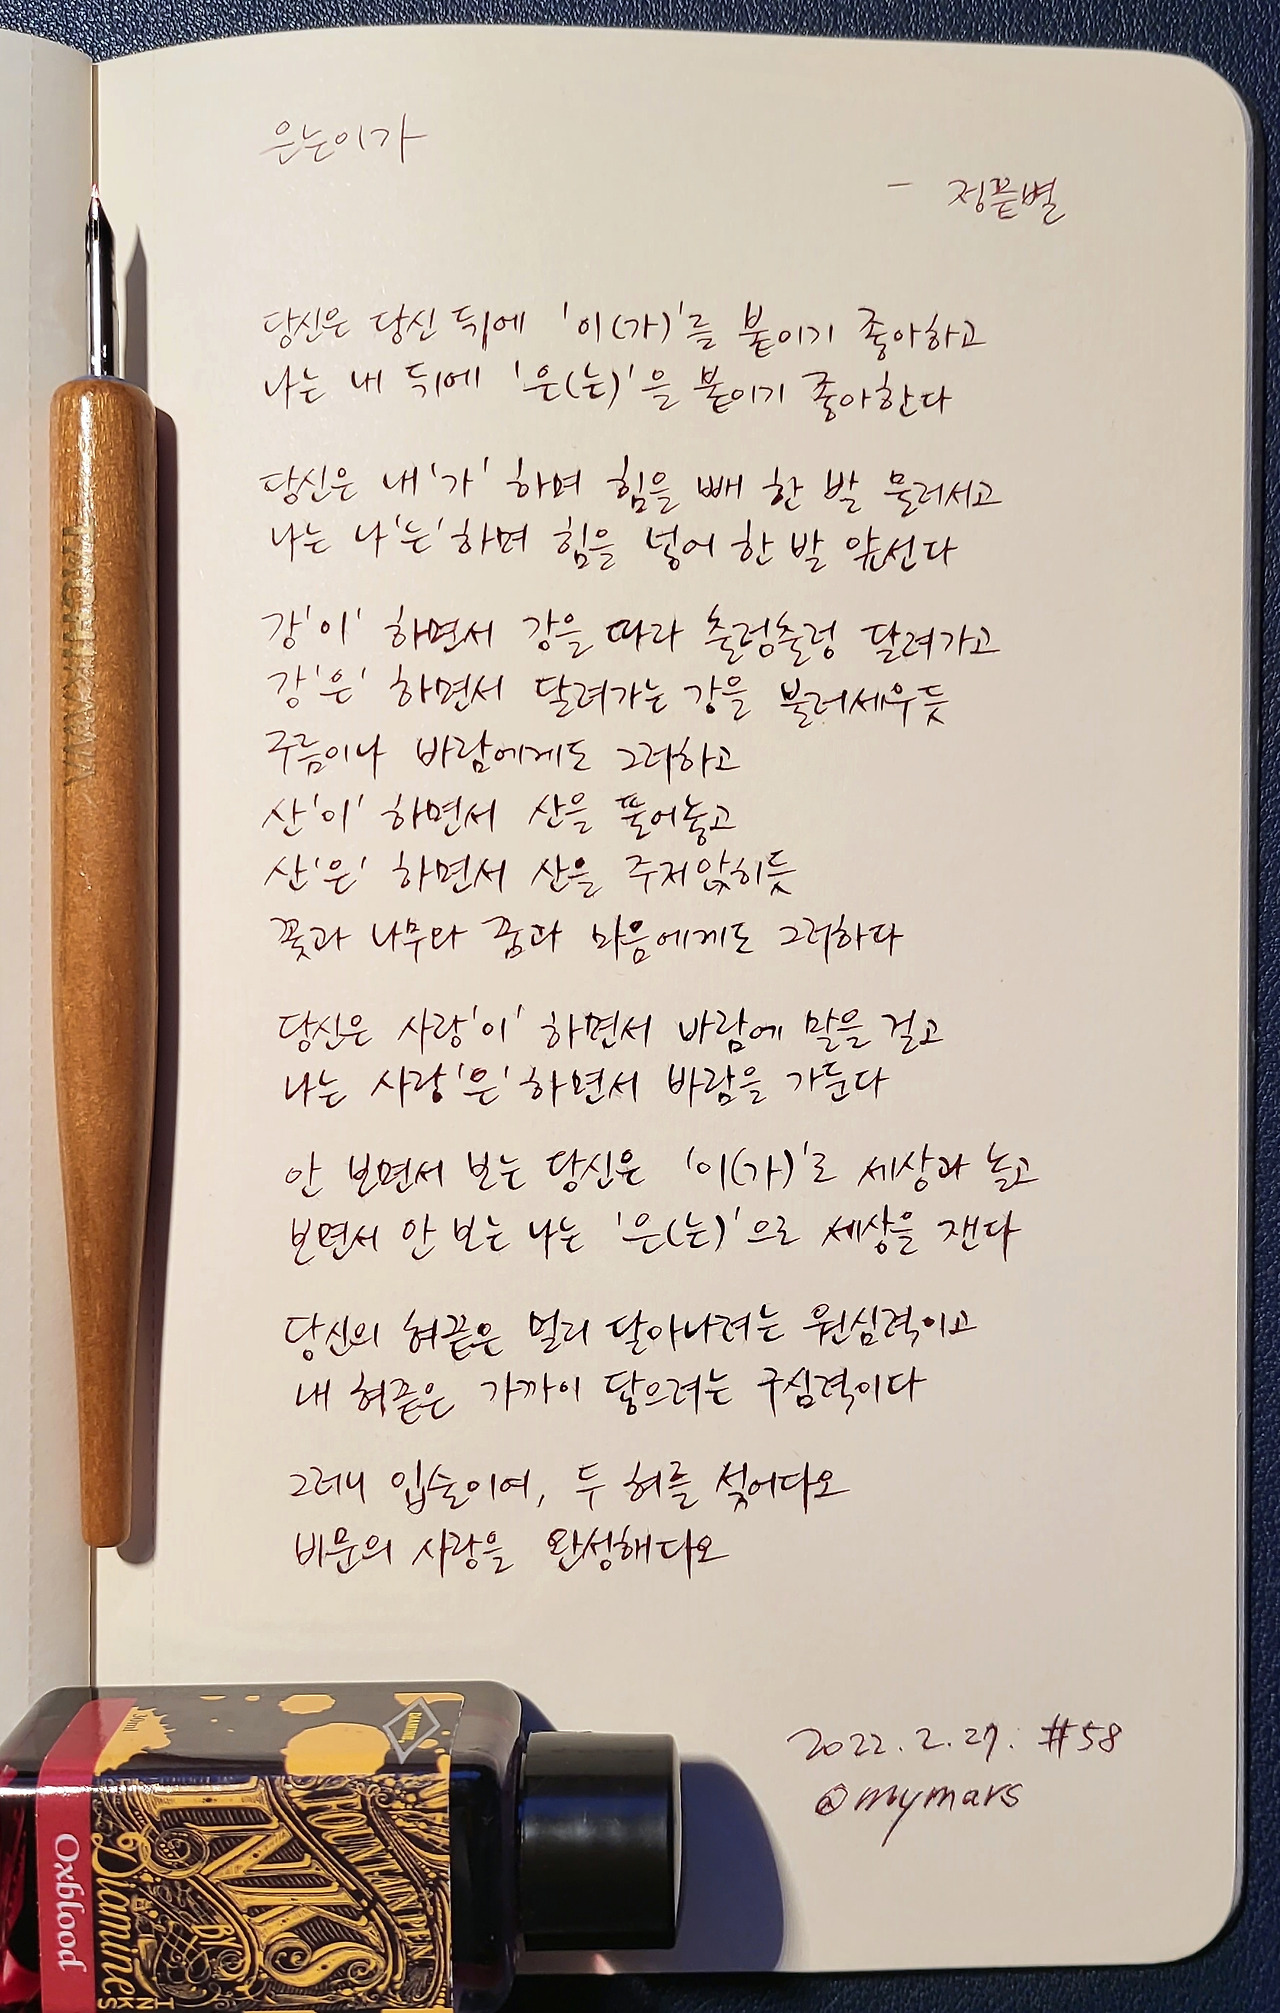 은는이가
- 정끝별
당신은 당신 뒤에 '이(가)'를 붙이기 좋아하고
나는 내 뒤에 '은(는)'을 붙이기 좋아한다
당신은 내'가' 하며 힘을 빼 한 발 물러서고
나는 나'는' 하며 힘을 넣어 한 발 앞선다
강'이' 하면서 강을 따라 출렁출렁 달려가고
강'은' 하면서 달려가는 강을 불러세우듯
구름이나 바람에게도 그러하고
산'이' 하면서 산을 풀어놓고
산'은' 하면서 산을 주저앉히듯
꽃과 나무와 꿈과 마음에게도 그러하다
당신은 사랑'이' 하면서 바람에 말을 걸고
나는 사랑'은' 하면서 바람을 가둔다
안 보면서 보는 당신은 '이(가)'로 세상과 놀고
보면서 안 보는 나는 '은(는)'으로 세상을 잰다
당신의 혀끝은 멀리 달아나려는 원심력이고
내 혀끝은 가까이 닿으려는 구심력이다
그러니 입술이여, 두 혀를 섞어다오
비문의 사랑을 완성해다오
2022. 2. 27. #58
@mymars
TACHIKAWA
Oxblood
30ml
DIAMINE
FOUNTAIN PEN
INKS
BY
Diamine
INKS